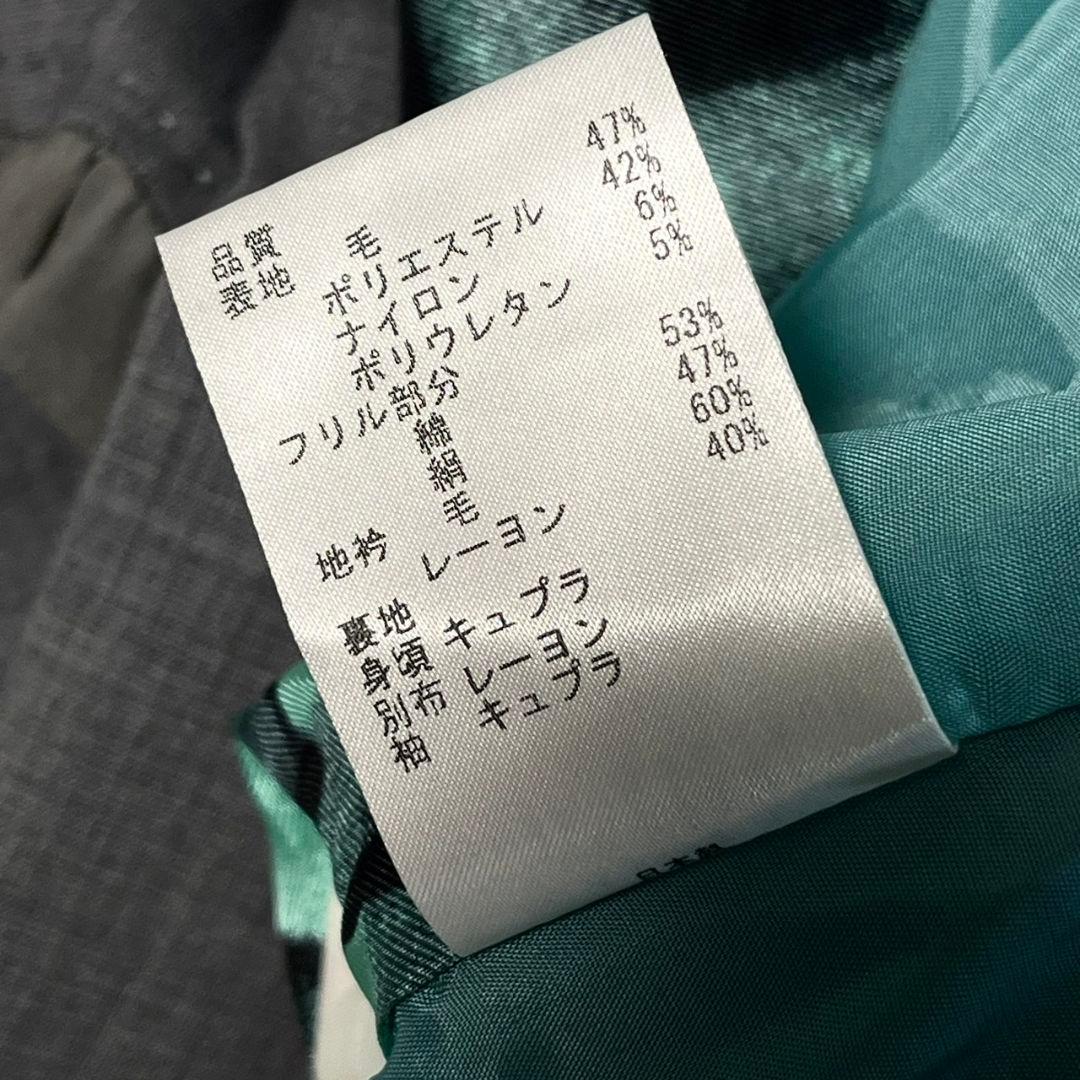 品質
表地 毛 47%
ポリエステル 42%
ナイロン 6%
ポリウレタン 5%
フリル部分
綿 53%
絹 47%
地衿 毛 60%
レーヨン 40%
裏地
身頃 キュプラ
別布 レーヨン
袖 キュプラ
日本製